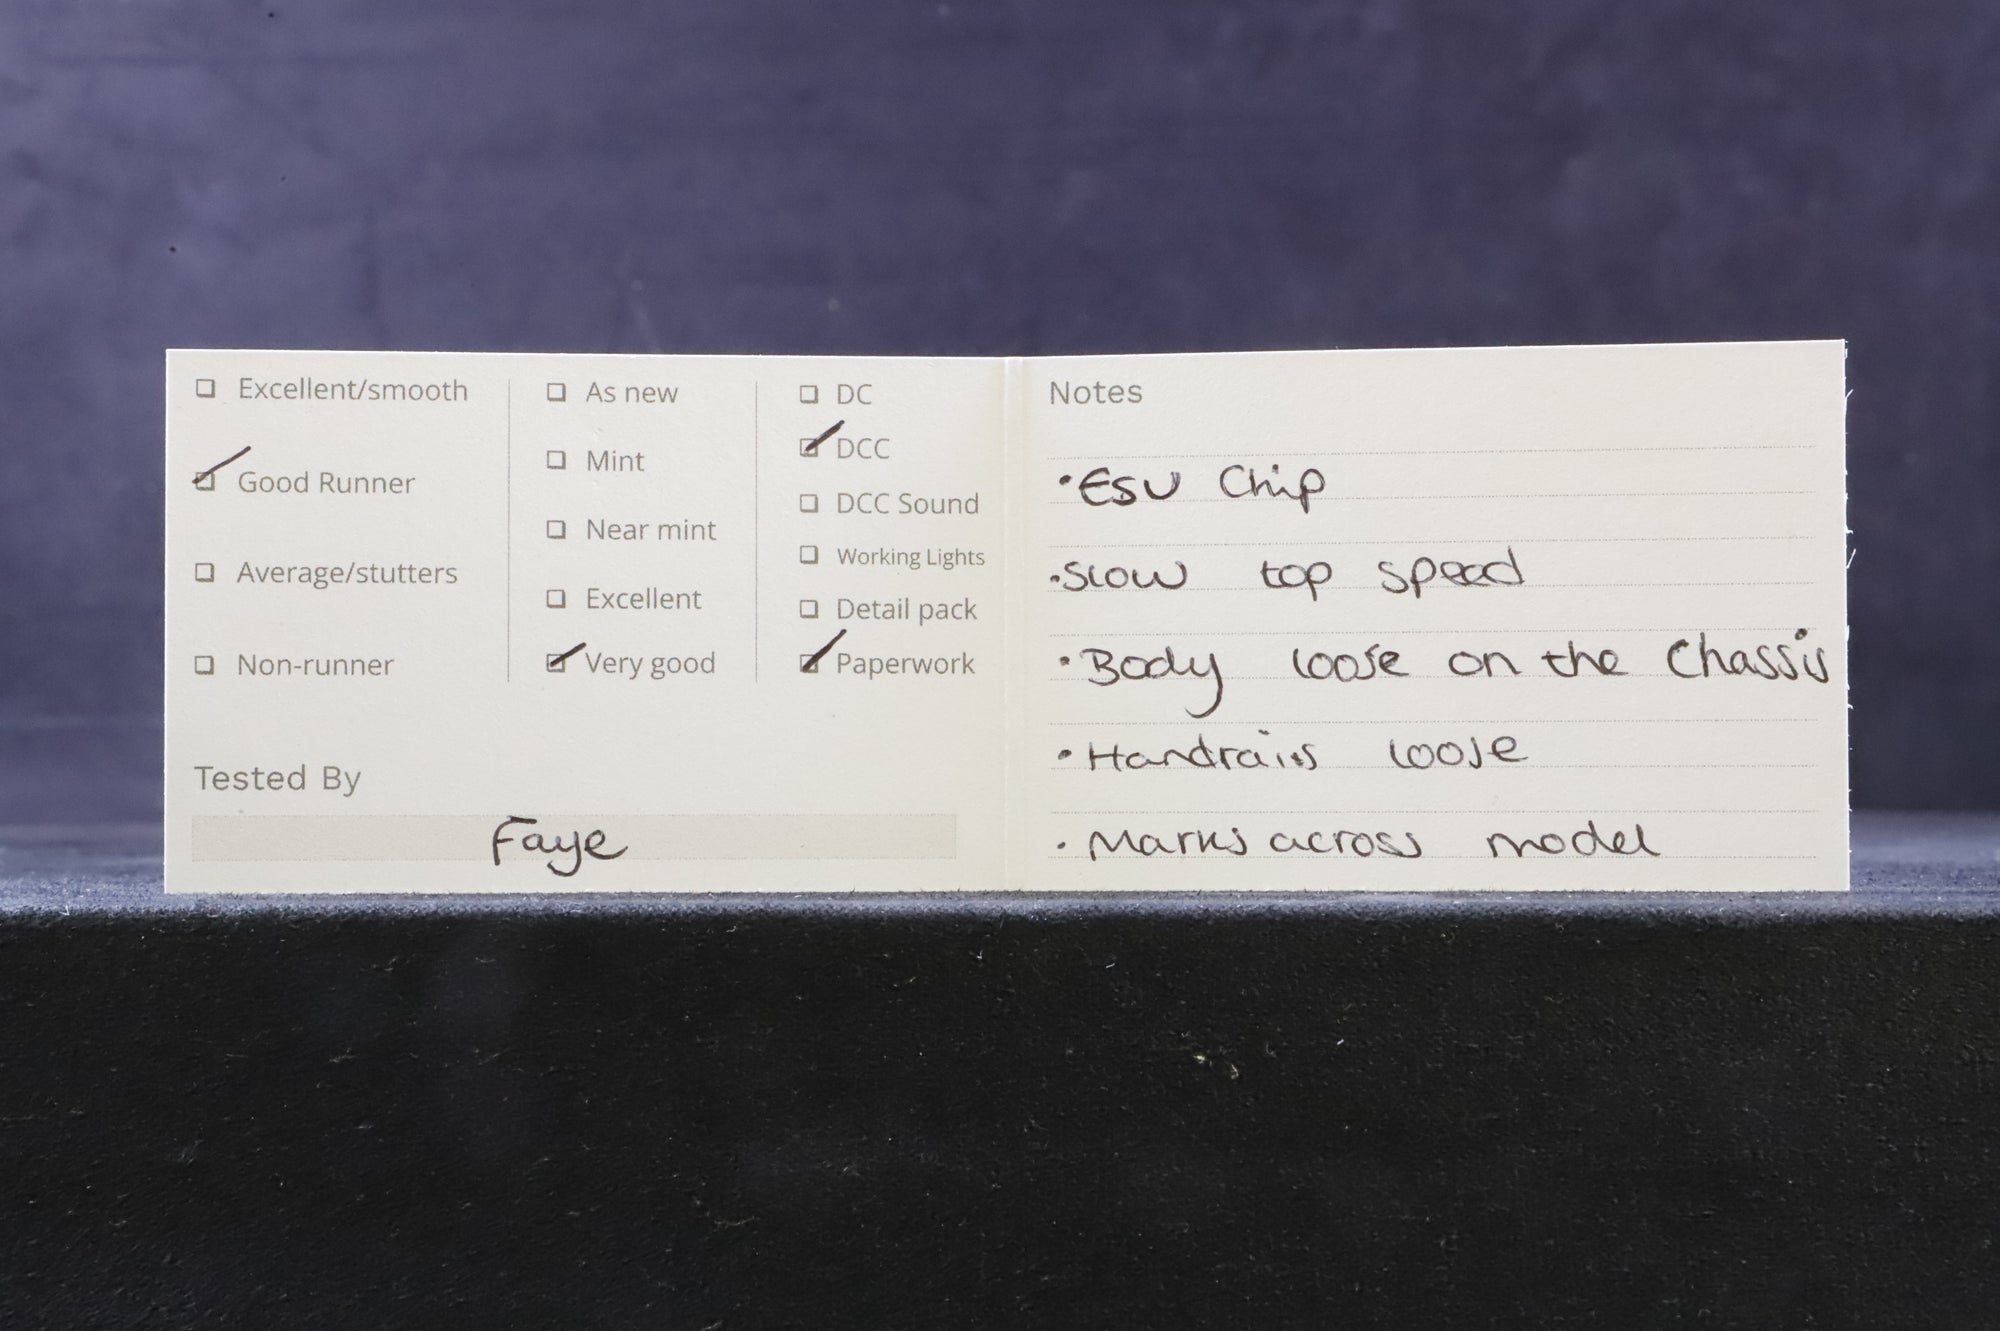 Excellent/smooth
Good Runner
Average/stutters
Non-runner
As new
Mint
Near mint
Excellent
Very good
DC
DCC
DCC Sound
Working Lights
Detail pack
Paperwork
Tested By
Faye
Notes
•ESU Chip
•Slow top speed
•Body loose on the Chassis
•Handrails loose
•Marks across model